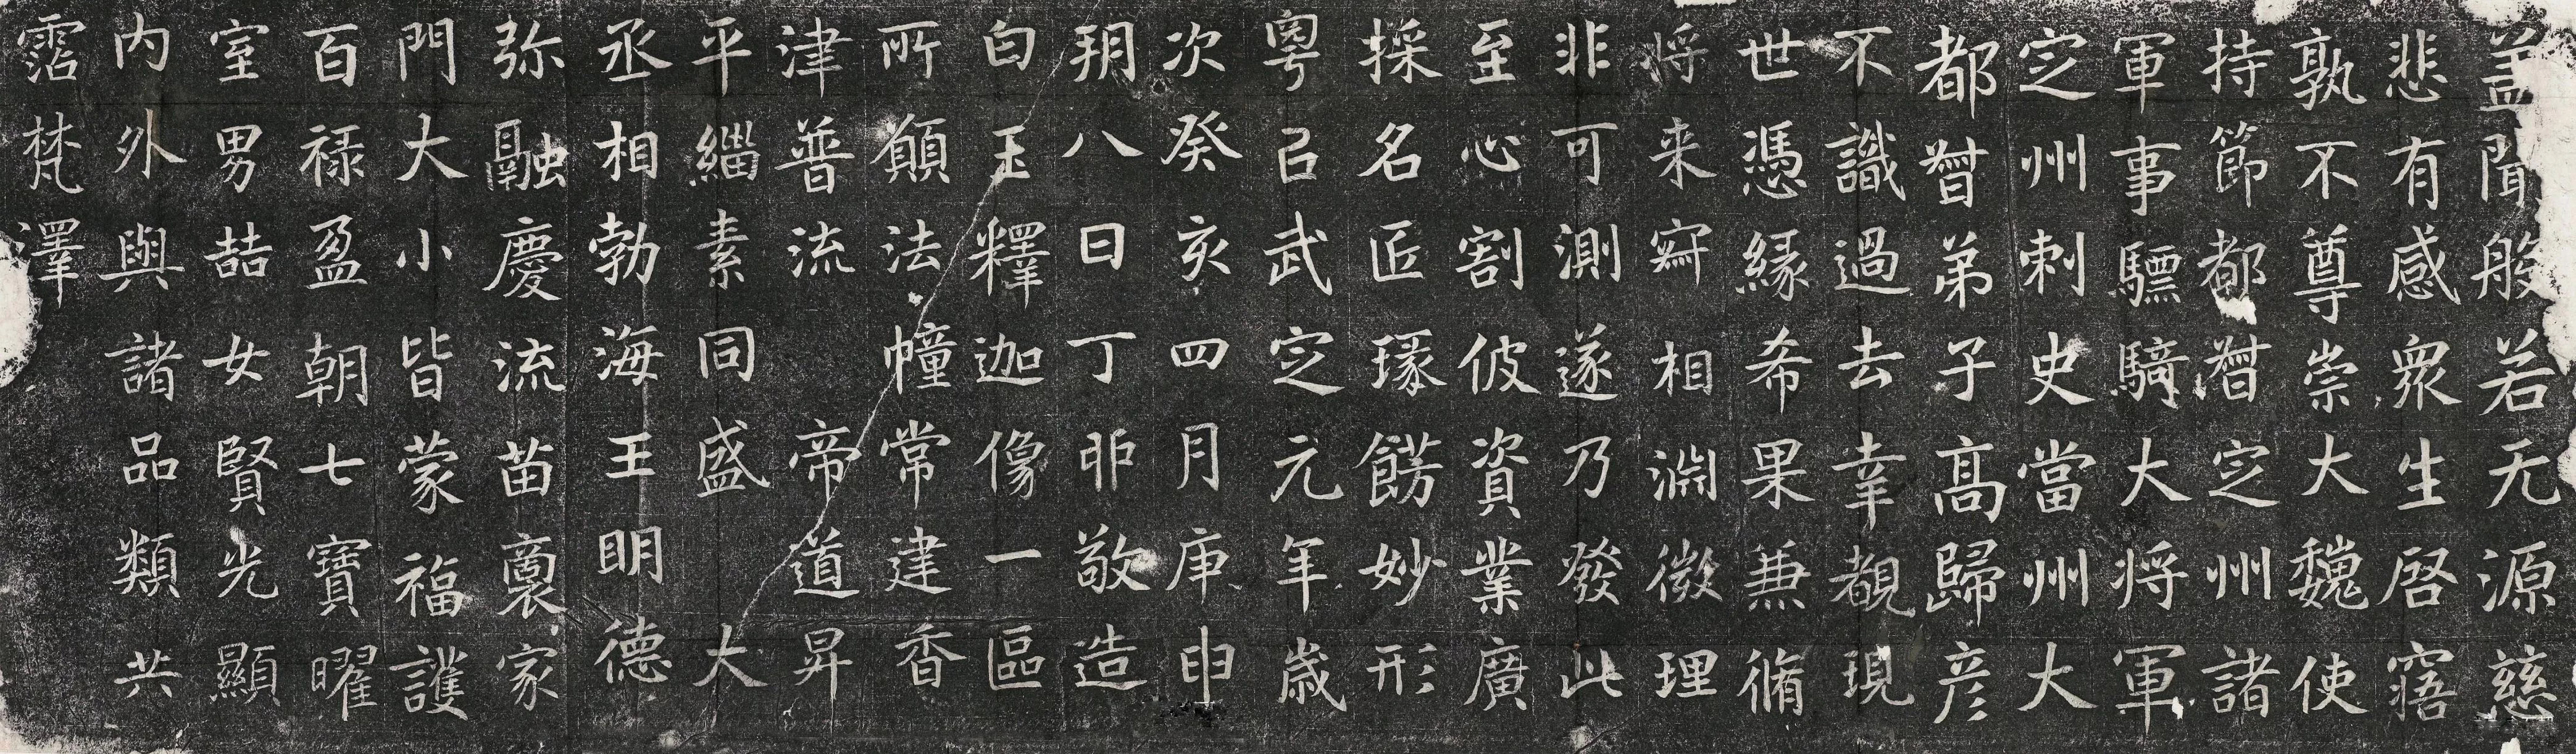 盖聞般若无源慈
悲有感眾生啓寤
孰不尊崇大魏使
持節都督定州諸
軍事驃騎大将軍
定州刺史當州大
都督弟子高歸彦
不識過去幸覩現
世憑緣希果兼脩
将来寂相淵微理
非可測遂乃發此
至心割彼資業廣
採名匠琢餝妙形
粤以武定元年歲
次癸亥四月庚申
朔八日丁卯敬造
白玉釋迦像一區
所願法幢常建香
津普流 帝道昇
平緇素同盛 大
丞相勃海王明德
弥融慶流苗裔家
門大小皆蒙福護
百禄盈朝七寶曜
室男喆女賢光顯
内外與諸品類共
霑梵澤